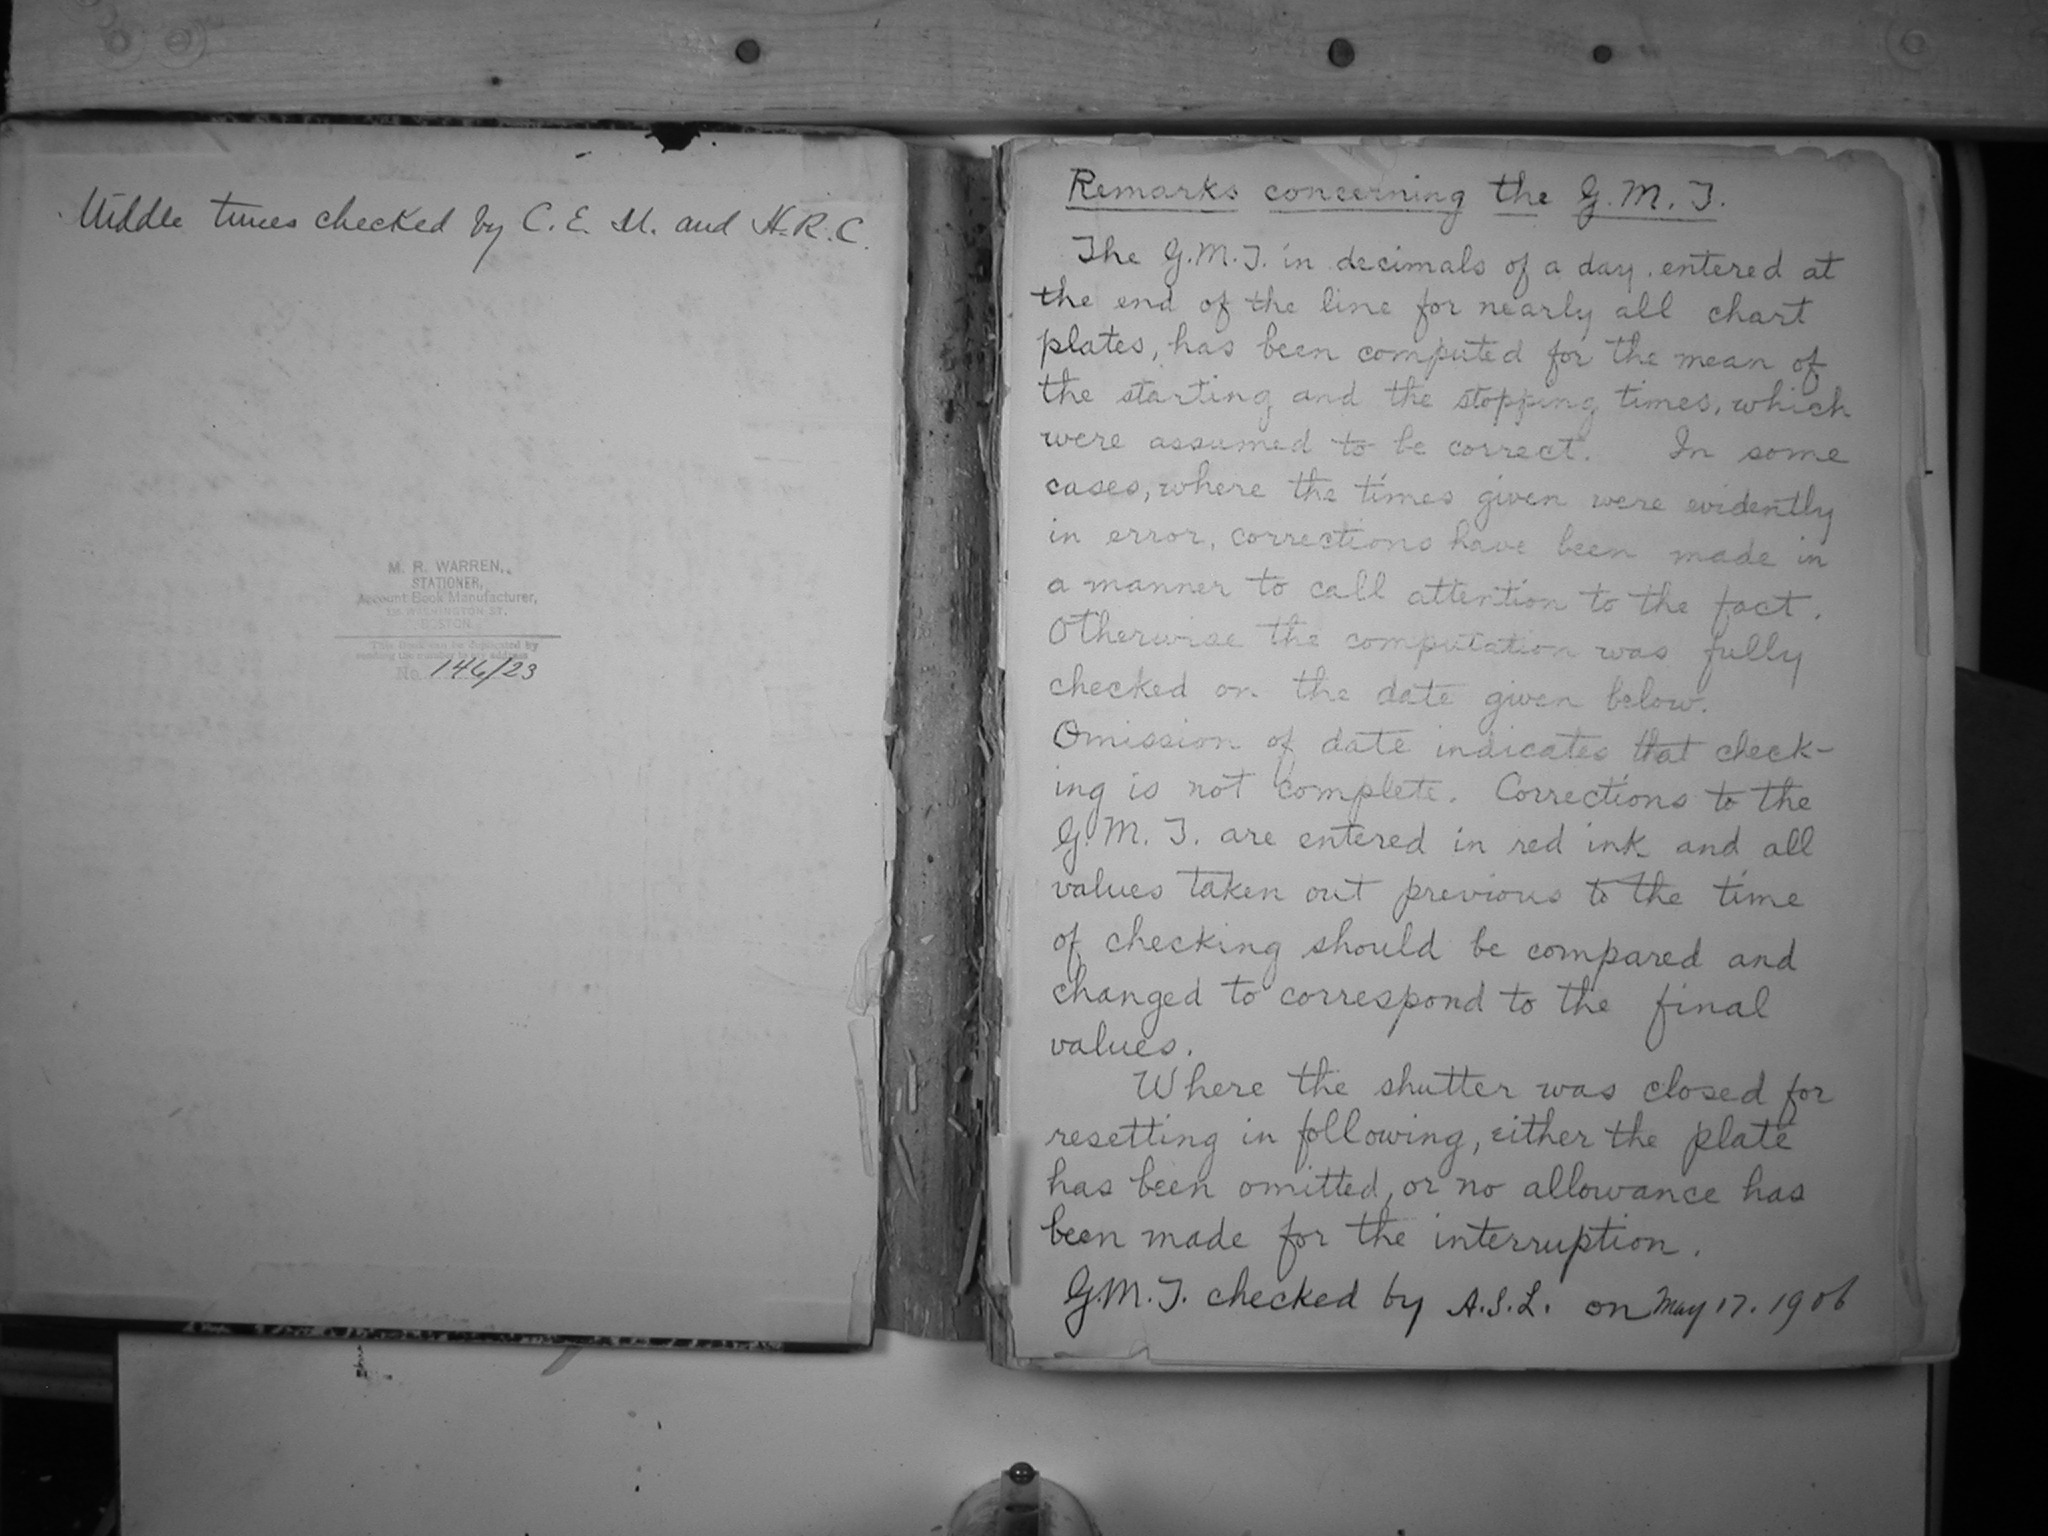 Middle times checked by C. E. M. and H. R. C.
M. R. WARREN,
STATIONER,
Account Book Manufacturer,
WASHINGTON ST.
BOSTON
This Book can be duplicated by
sending the number to my address
No. 146/23
Remarks concerning the G. M. T.
The G. M. T. in decimals of a day, entered at
the end of the line for nearly all chart
plates, has been computed for the mean of
the starting and the stopping times, which
were assumed to be correct. In some
cases, where the times given were evidently
in error, corrections have been made in
a manner to call attention to the fact.
Otherwise the computation was fully
checked on the date given below.
Omission of date indicates that check-
ing is not complete. Corrections to the
G. M. T. are entered in red ink and all
values taken out previous to the time
of checking should be compared and
changed to correspond to the final
values.
Where the shutter was closed for
resetting in following, either the plate
has been omitted, or no allowance has
been made for the interruption.
G. M. T. checked by A. S. L. on May 17. 1906